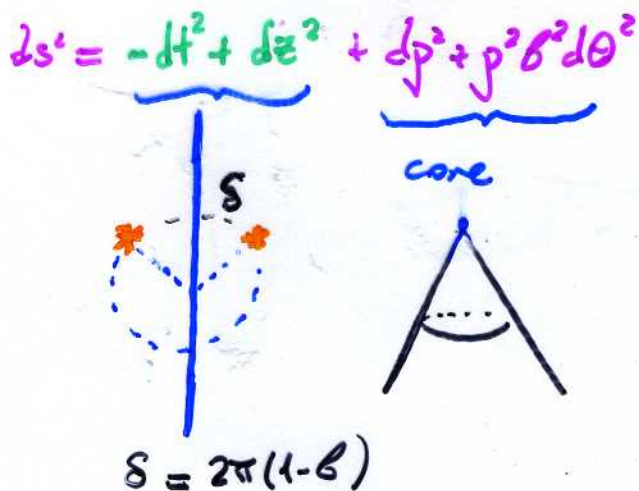 ds² = -dt² + dz² + dρ² + ρ²b²dθ²
cone
δ
δ = 2π(1-b)